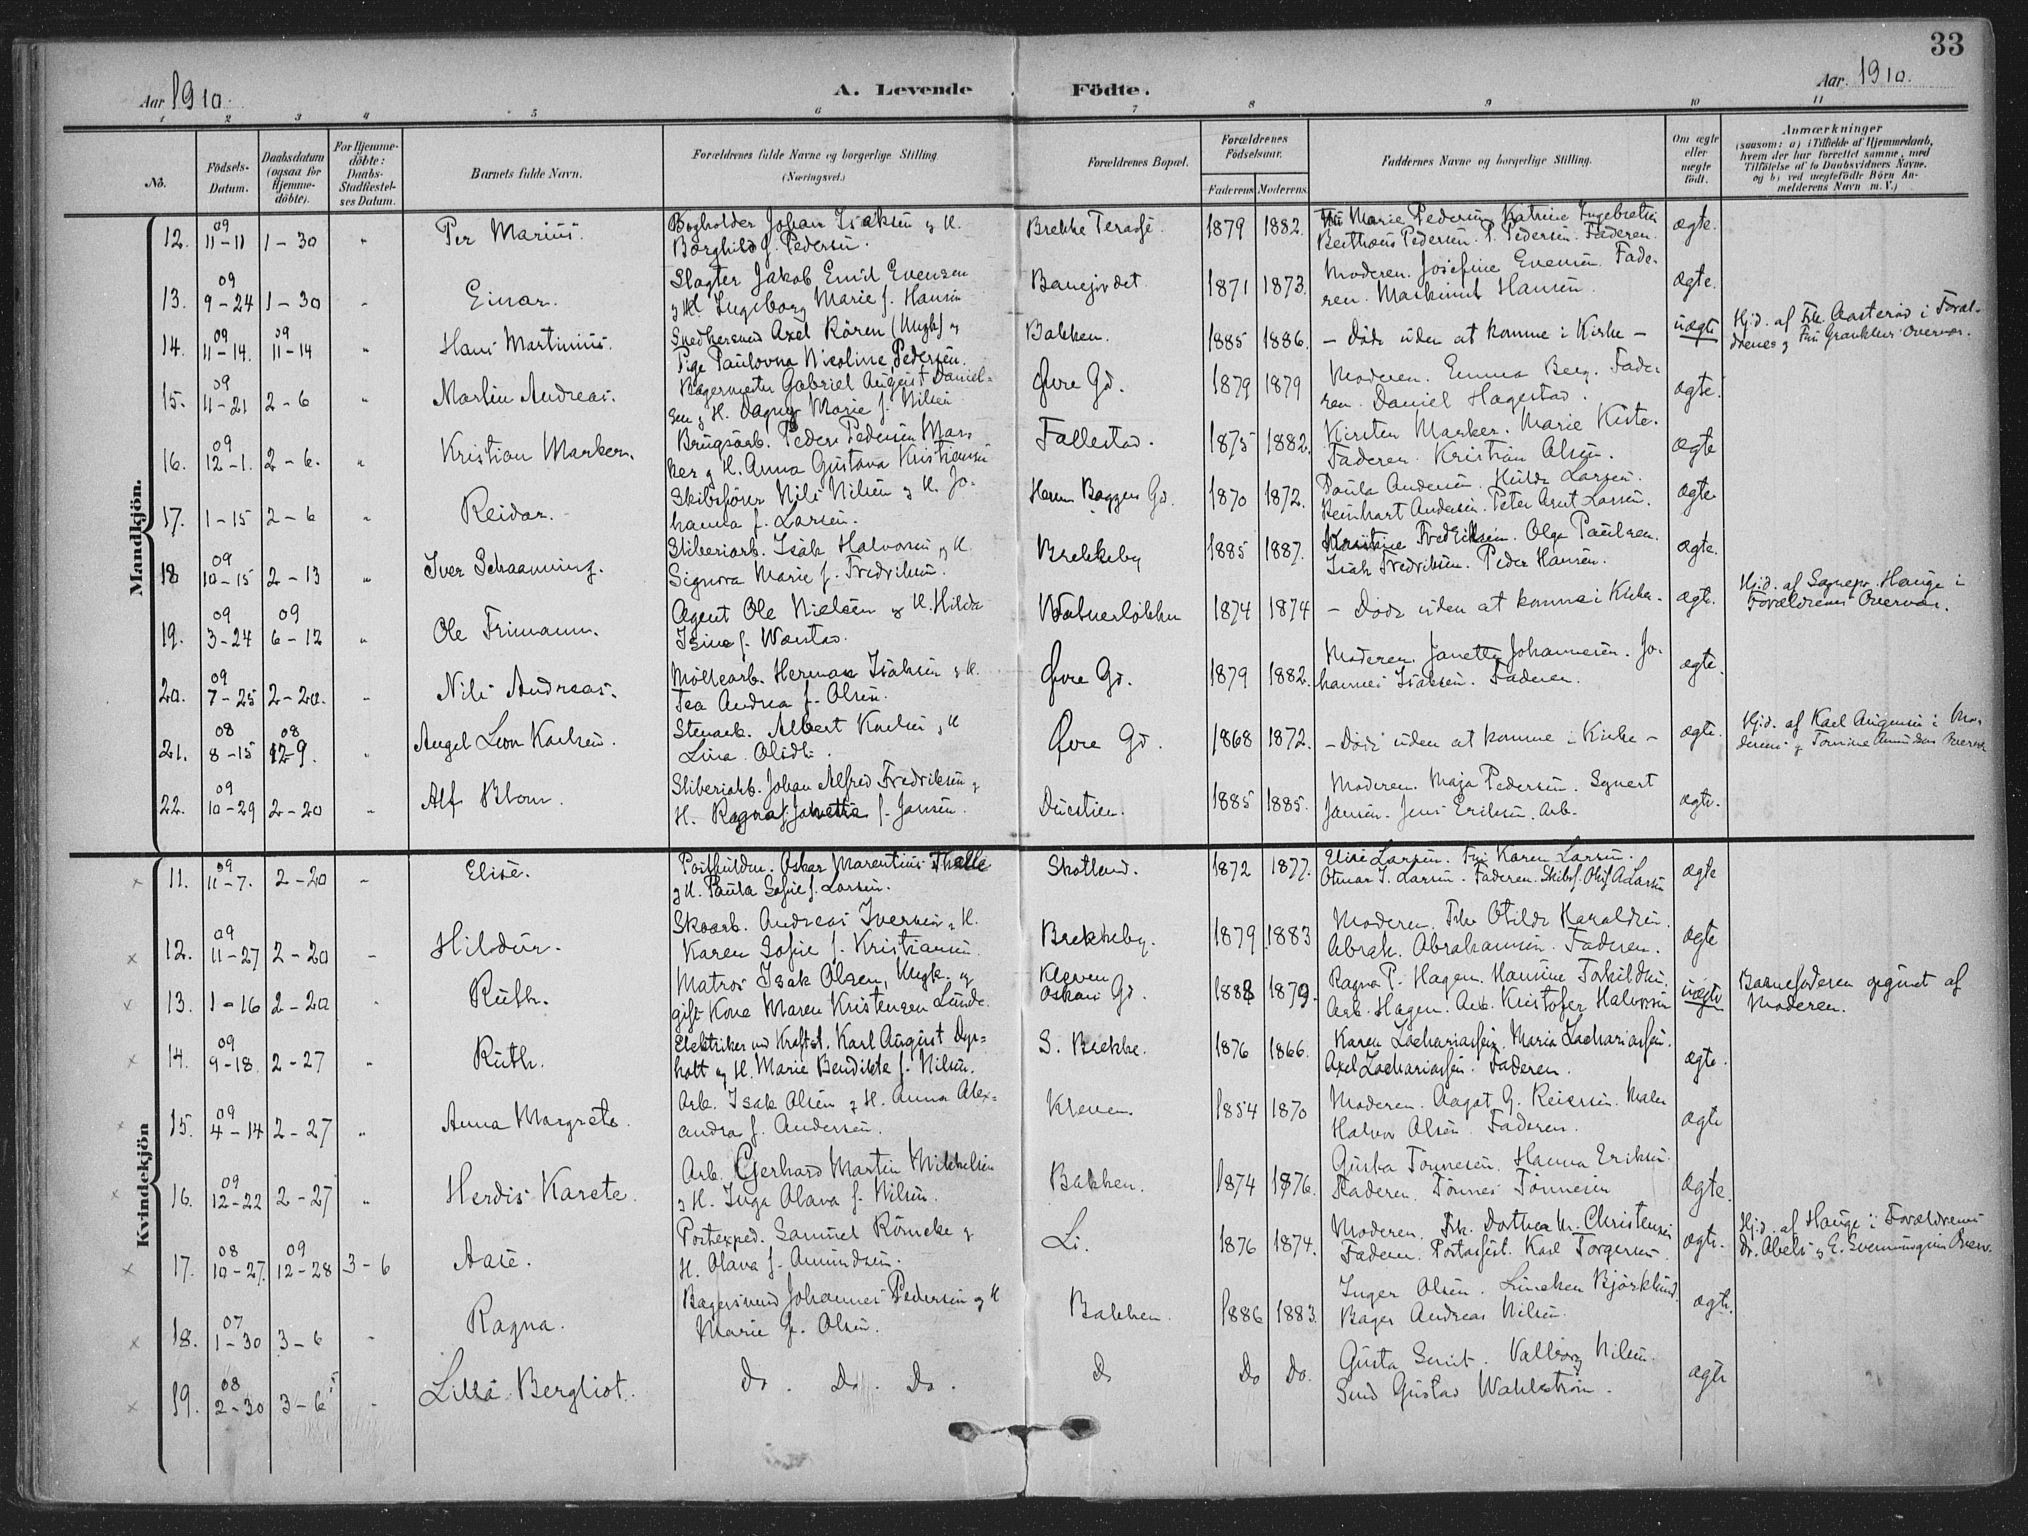 33
Aar 1910.
A. Levende Födte.
Aar 1910.
1 2 3 4 5 6 7 8 9 10 11
No.
Födsels-Datum.
Daabsdatum (ogsaa for Hjemme-döbte).
For Hjemme-döbte: Daabs-Stadfæstel-ses Datum.
Barnets fulde Navn.
Forældrenes fulde Navne og borgerlige Stilling (Næringsvei.)
Forældrenes Bopæl.
Forældrenes Födselsaar.
Faderens Moderens
Faddernes Navne og borgerlige Stilling.
Om ægte eller uægte födt.
Anmærkninger
(saasom: a) i Tilfælde af Hjemmedaab, hvem der har forrettet samme, med Tilföielse af to Daabsvidners Navne. og b) ved uægtefödte Börn An-melderens Navn m. V.)
Mandkjön.
12. 09 11-11 1-30 " Per Marius. Bogholder Johan Isaksen og H. Borghild f. Pedersen. Brekke Terasse. 1879 1882. Marie Pedersen. Katrine Ingebretsen Berthaus Pedersen. P. Pedersen. Faderen. ægte.
13. 09 9-24 1-30 " Einar. Slagter Jakob Emil Evensen og H. Ingeborg Marie f. Hansen Banejordet 1871 1873. Moderen. Josefine Evensen. Fade-ren. Maskinist Hansen. ægte.
14. 09 11-14. 09 11-14 " Hans Martinius. Snedkersvend Axel Rören (Ungk) og Pige Paulovna Nicoline Pedersen. Bakken. 1885 1886. - Döde uden at komme i Kirke - uægte Hjd. af Frk. Aasterød i Foræl-drenes og Fru overvær.
15. 09 11-21 2-6 " Martin Andreas. Bagermester Gabriel August Daniel-sen og H. Dagny Marie f. Nilsen Øvre Gd. 1879 1879 Moderen. Emma Berg. Fade-ren. Daniel Hagestad. ægte.
16. 09 12-1. 2-6. " Kristian Marken. Brugsarb. Peder Pedersen Mar-ker og H. Anna Gustava Kristiansen Fallestad. 1875 1882. Kirsten Marker. Marie Kiste. Faderen. Kristian Olsen. ægte
17. 1-15 2-6 " Reidar. Skibsförer Nils Nilsen og H. Jo-hanna f. Larsen. Herm Bagges Gd. 1870 1872. Paula Andersen. Hulda Larsen. Reinhart Andersen. Peter Arnt Larsen. ægte
18 09 10-15 2-13 " Iver Schaanning. Sliberiarb. Isak Halvorsen og H. Signora Marie f. Fredriksen. Brekkeby 1885 1887. Kristine Fredriksen. Olga Paulsen. Isak Fredriksen. Peder Hansen. ægte.
19. 09 3-24 09 6-12 " Ole Frimann. Agent Ole Nielsen og H. Hilda Isine f. Warstad. 1874 1874 - Döde uden at komme i Kirke. ægte. Hjd. af Sognepr. Hauge i Forældrenes Overvær.
20. 09 7-25 2-20. " Nils Andreas. Möllearb. Herman Isaksen og H. Tea Andrea f. Olsen. Øvre Gd. 1879 1882. Moderen. Janette Johannesen. Jo-hannes Isaksen. Faderen. ægte.
21. 08 8-15 08 12-9. " Angel Leon Karlsen. Stenarb. Albert Karlsen og H Lina Øvre Gd. 1868 1872. - Döde uden at komme i Kirke - ægte. Hjd. af Karl Augensen i Mo-derens og Overvær
22. 09 10-29 2-20 " Alf Blom. Sliberiarb. Johan Alfred Fredriksen og H. Ragna Janette f. Jansen. Duestien. 1885 1885. Moderen. Maja Pedersen. Synert Jansen. Jens Eriksen. Arb. ægte.
Kvindekjön
x 11. 09 11-7. 2-20 " Elise. Postfuldm. Oskar Marentius Thalle og H. Paula Sofie f. Larsen. Skotland. 1872 1877. Elise Larsen. Fru Karen Larsen. Otmar T. Larsen. Faderen. Skibsf. Olaf A. Larsen ægte
x 12. 09 11-27 2-20 " Hildur. Skoarb. Andreas Iversen og H. Karen Sofie f. Kristiansen. Brekkeby. 1879 1883 Moderen. Frk. Otilde Haraldsen. Abrah. Abrahamsen. Faderen. ægte
x 13. 1-16 2-20 Ruth. Matros Isak Olsen, Ungk. og gift Kone Maren Kristensen Lunde. Kleven Oskars Gd. 1888 1879. Ragna P. Hagen. Hansine Torkildsen. Arb. Hagen. Arb. Kristofer Halvorsen uægte Barnefaderen opgivet af Moderen.
x 14. 09 9-18. 2-27 " Ruth. Elektriker ved Kraftst. Karl August Dyr-holt og H. Marie Bendikte f. Nilsen. S. Brekke. 1876 1866. Karen Zachariassen. Maria Zachariassen. Axel Zachariassen. Faderen. ægte.
x 15. 09 4-14 2-27 " Anna Margrete. Arb. Isak Olsen og H. Anna Alex-andra f. Andersen. Kleven. 1854 1870 Moderen. Aagot G. Reiersen. Maler Halvor Olsen. Faderen. ægte
x 16. 09 12-22 2-27 " Herdis Karete. Arb. Gerhard Martin Mikkelsen og H. Inga Olava f. Nilsen. Bakken. 1874 1876. Gusta Tönnesen. Hanna Eriksen. Faderen. Tönnes Tönnesen ægte.
x 17. 08 10-27. 09 12-28 3-6 Aase. Postexped. Samuel Römcke og H. Olava f. Amundsen. Li. 1876 1874. Moderen. Frk. Dorthea M. Christensen Faderen. Postassist. Karl Torgersen. ægte. Hjd. af Hauge i Forældrenes Dr. Abels og E. Overv.
x 18. 07 1-30 3-6 " Ragna. Bagersvend Johannes Pedersen og H Marie f. Olsen. Bakken. 1886 1883. Inger Olsen. Lineken Björklund. Bager Andreas Nilsen. ægte.
x 19. 08 2-30 3-6 " Lilla Bergliot. Do. Do. Do. Do Do Do. Gusta Smit. Valborg Nilsen. Gustav Wahlström. ægte